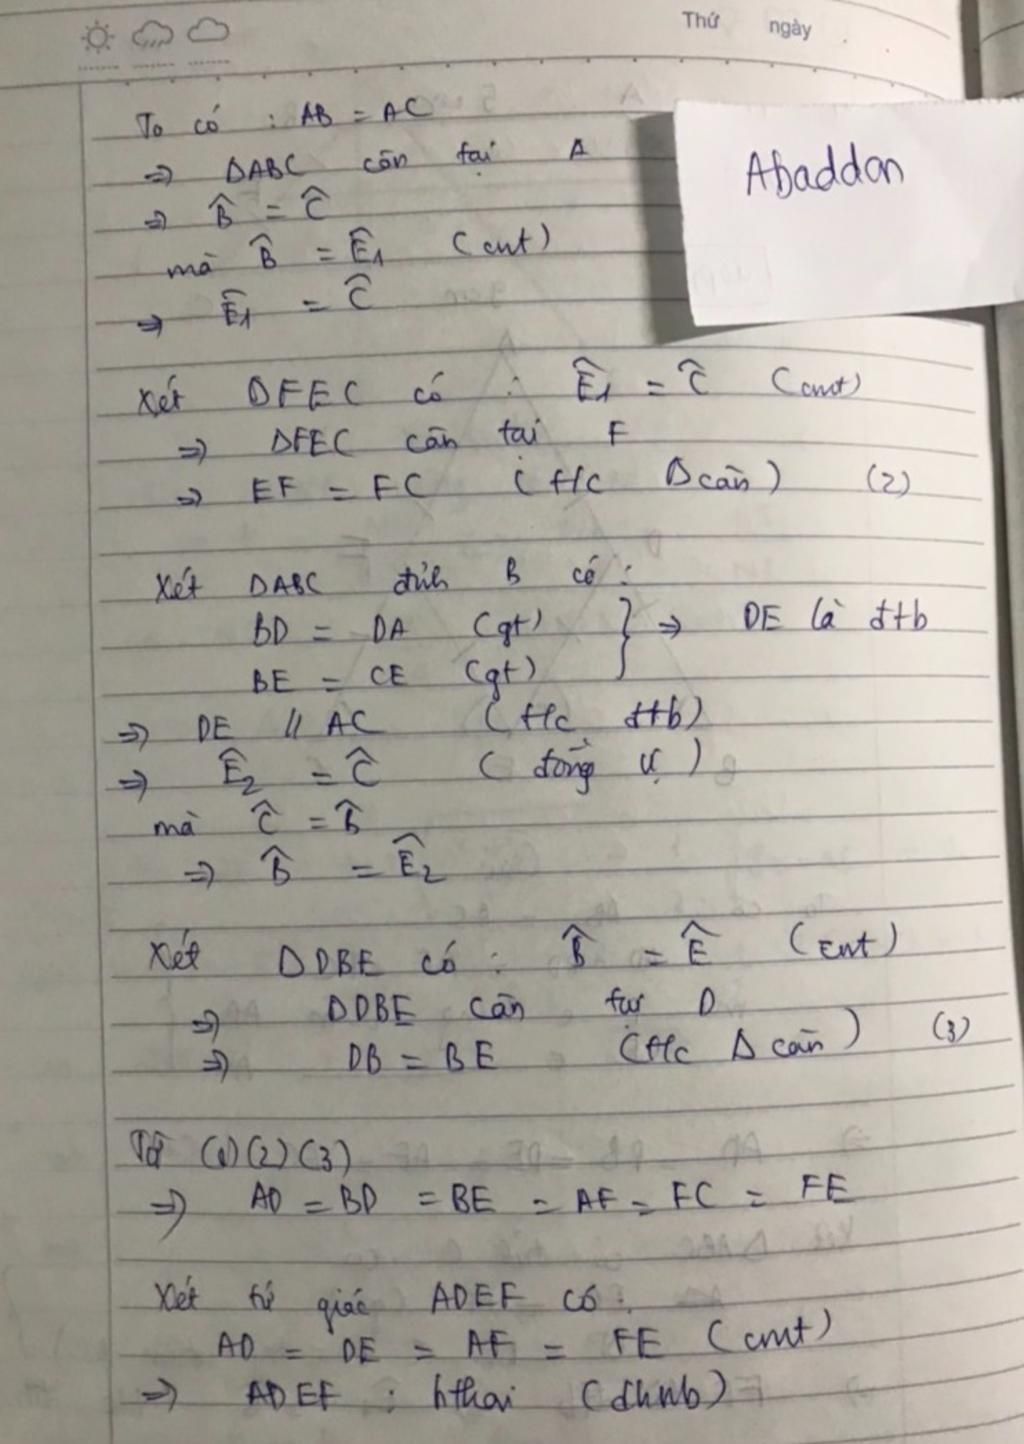 Thứ ngày
Abaddon
Ta có : AB = AC
=> ΔABC cân tại A
=> B̂ = Ĉ
mà B̂ = Ê1 (cmt)
=> Ê1 = Ĉ
Xét ΔFEC có : Ê1 = Ĉ (cmt)
=> ΔFEC cân tại F
=> EF = FC (t/c Δ cân) (2)
Xét ΔABC đỉnh B có :
BD = DA (gt) } => DE là đtb
BE = CE (gt)
=> DE // AC (t/c đtb)
=> Ê2 = Ĉ (đồng vị)
mà Ĉ = B̂
=> B̂ = Ê2
Xét ΔDBE có : B̂ = Ê (cmt)
=> ΔDBE cân tại D
=> DB = BE (t/c Δ cân) (3)
Từ (1)(2)(3)
=> AD = BD = BE = AF = FC = FE
Xét tứ giác ADEF có :
AD = DE = AF = FE (cmt)
=> ADEF : hthoi (dhnb)